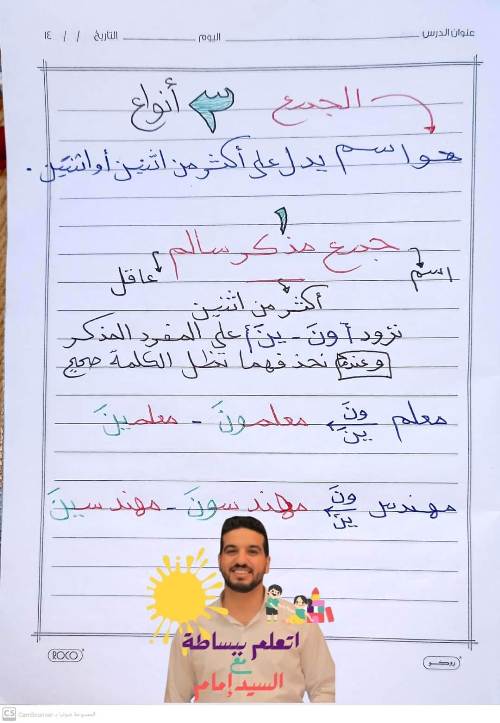 عنوان الدرس اليوم التاريخ / / ١٤
الجمع ٣ أنواع
هو اسم يدل على أكثر من اثنين أو اثنتين .
١
جمع مذكر سالم
اسم عاقل
أكثر من اثنين
نزود / ونَ - ينَ / على المفرد المذكر
وعندما نحذفهما تظل الكلمة صحيح
معلم ونَ ينَ معلمونَ - معلمينَ
مهندس ونَ ينَ مهندسونَ - مهندسينَ
اتعلم ببساطة
مع
السيد إمام
ROCO روكو
CS الممسوحة ضوئيا بـ CamScanner